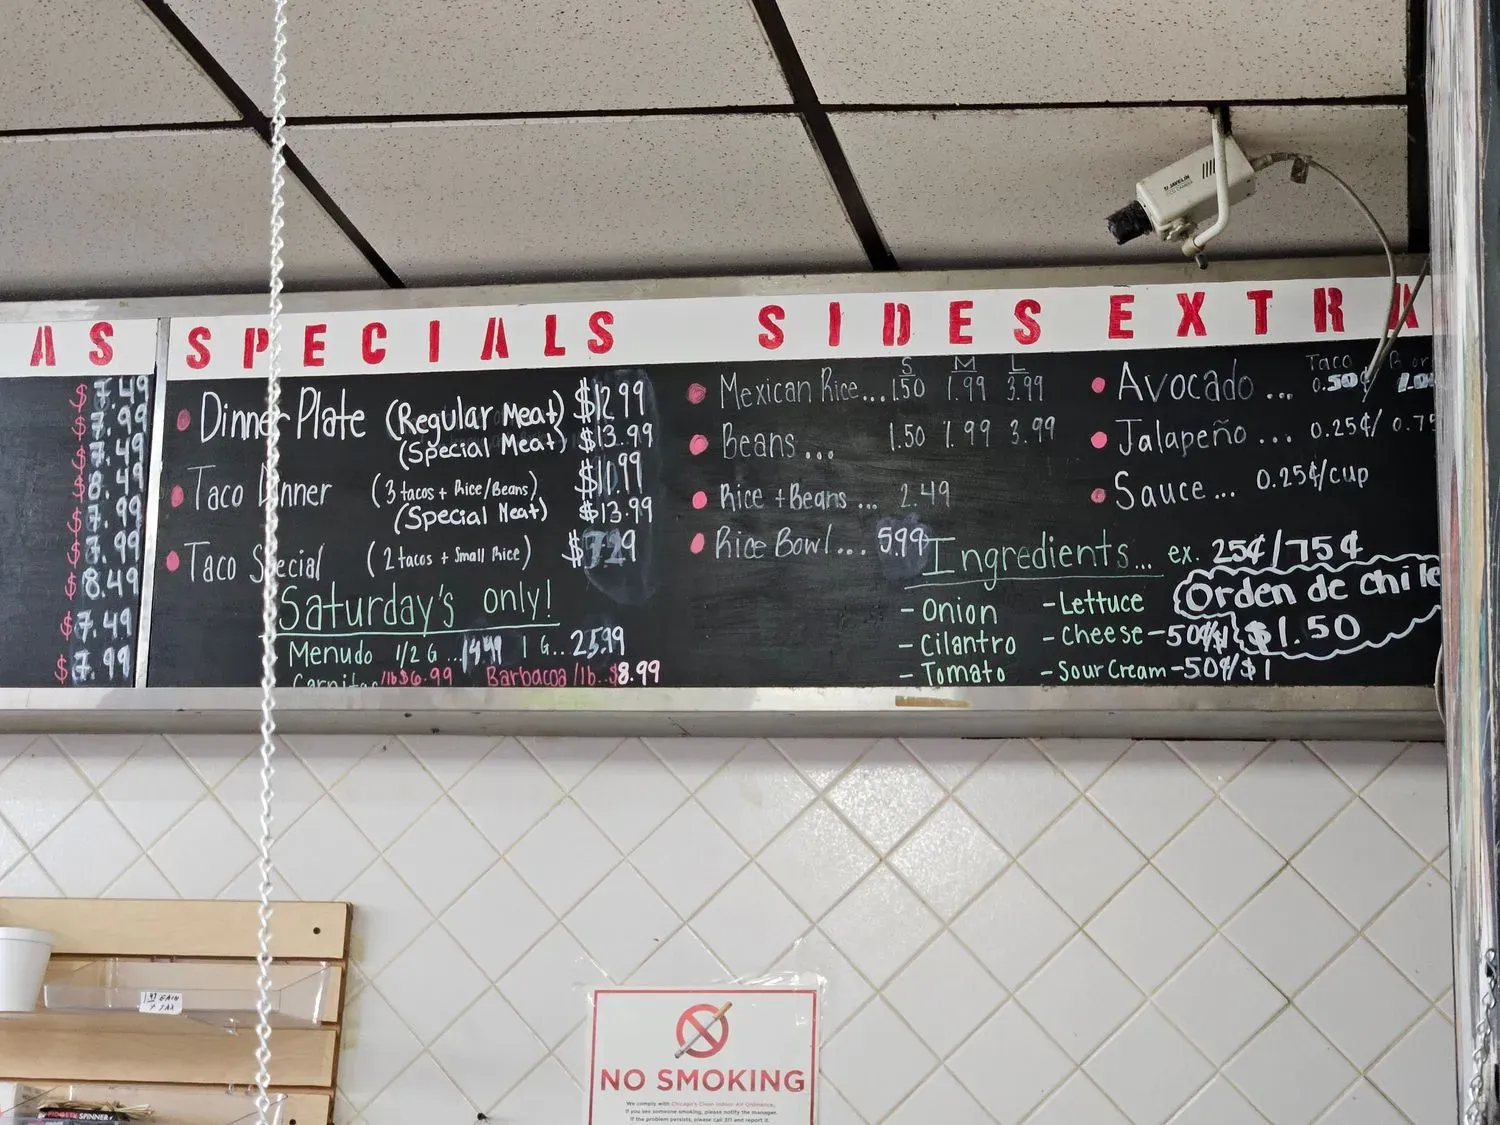 AS
$7.49
$7.99
$7.49
$8.49
$7.99
$7.99
$8.49
$7.49
$7.99
SPECIALS
Dinner Plate (Regular Meat) $12.99
(Special Meat) $13.99
Taco Dinner (3 tacos + Rice/Beans) $10.99
(Special Meat) $13.99
Taco Special (2 tacos + Small Rice) $7.29
Saturday's only!
Menudo 1/2 G... 1 G.. 25.99
Carnitas /lb $6.99 Barbacoa /lb..$8.99
SIDES
S M L
Mexican Rice... 1.50 1.99 3.99
Beans... 1.50 1.99 3.99
Rice + Beans... 2.49
Rice Bowl... 5.99
EXTRA
Taco
Avocado... 0.50¢
Jalapeño... 0.25¢/ 0.75
Sauce... 0.25¢/cup
Ingredients... ex. 25¢/75¢
- Onion
- Cilantro
- Tomato
- Lettuce
- Cheese - 50¢/$1
- Sour Cream - 50¢/$1
Orden de chile
$1.50
JAVELIN
NO SMOKING
We comply with Chicago's Clean Indoor Air Ordinance.
If you see someone smoking, please notify the manager.
If the problem persists, please call 311 and report it.
EACH
+ TAX
FIDGET SPINNER